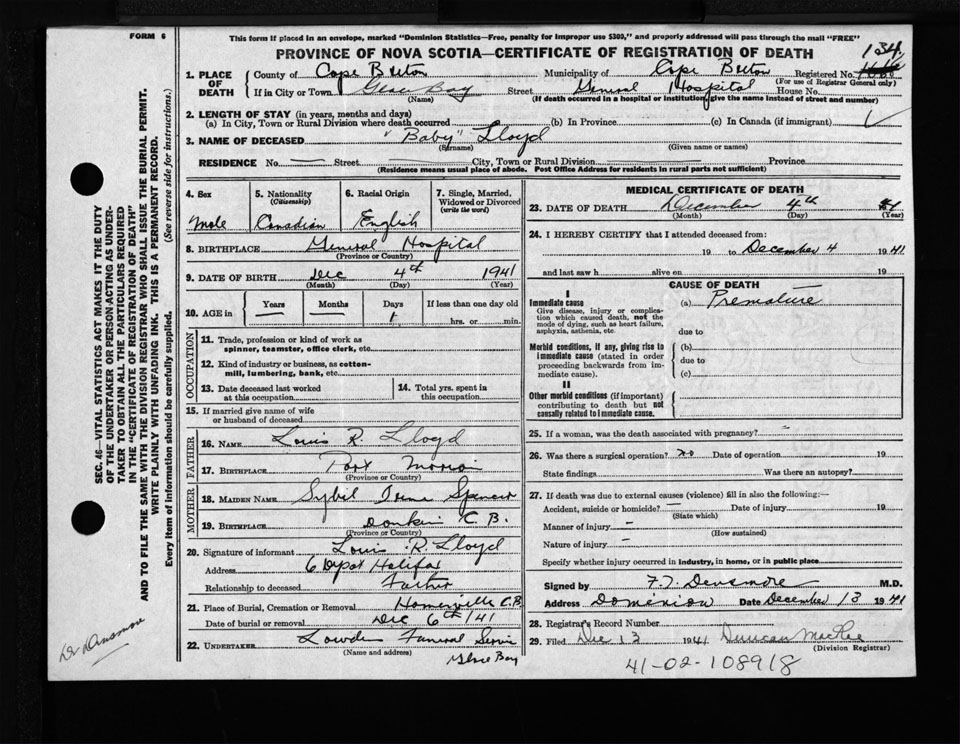 FORM 6
This form if placed in an envelope, marked "Dominion Statistics—Free, penalty for improper use $300," and properly addressed will pass through the mail "FREE"
PROVINCE OF NOVA SCOTIA—CERTIFICATE OF REGISTRATION OF DEATH
134
1. PLACE OF DEATH County of Cape Breton Municipality of Cape Breton Registered No.
(For use of Registrar General only)
If in City or Town Glace Bay Street General Hospital House No.
(Name) (If death occurred in a hospital or institution, give the name instead of street and number)
2. LENGTH OF STAY (in years, months and days)
(a) In City, Town or Rural Division where death occurred (b) In Province (c) In Canada (if immigrant)
3. NAME OF DECEASED "Baby" Lloyd
(Surname) (Given name or names)
RESIDENCE No. — Street — City, Town or Rural Division Province
(Residence means usual place of abode. Post Office Address for residents in rural parts not sufficient)
4. Sex 5. Nationality (Citizenship) 6. Racial Origin 7. Single, Married, Widowed or Divorced (write the word)
Male Canadian English
8. BIRTHPLACE General Hospital
(Province or Country)
9. DATE OF BIRTH Dec 4th 1941
(Month) (Day) (Year)
10. AGE in Years Months Days If less than one day old
— — 1 hrs. or min.
OCCUPATION
11. Trade, profession or kind of work as spinner, teamster, office clerk, etc.
12. Kind of industry or business, as cotton-mill, lumbering, bank, etc.
13. Date deceased last worked at this occupation
14. Total yrs. spent in this occupation
15. If married give name of wife or husband of deceased
FATHER
16. NAME Louis R. Lloyd
17. BIRTHPLACE Port Morien
(Province or Country)
MOTHER
18. MAIDEN NAME Sybil Irma Spencer
19. BIRTHPLACE Donkin C.B.
(Province or Country)
20. Signature of informant Louis R. Lloyd
Address 6 Depot Halifax
Relationship to deceased Father
21. Place of Burial, Cremation or Removal Homeville C.B.
Date of burial or removal Dec 6th/41
22. UNDERTAKER Lowden Funeral Service
(Name and address) Glace Bay
MEDICAL CERTIFICATE OF DEATH
23. DATE OF DEATH December 4th 41
(Month) (Day) (Year)
24. I HEREBY CERTIFY that I attended deceased from:
19 to December 4 1941
and last saw h alive on 19
CAUSE OF DEATH
I
Immediate cause (a) Premature
Give disease, injury or complication which caused death, not the mode of dying, such as heart failure, asphyxia, asthenia, etc.
due to
Morbid conditions, if any, giving rise to immediate cause (stated in order proceeding backwards from immediate cause).
(b)
due to
(c)
II
Other morbid conditions (if important) contributing to death but not causally related to immediate cause.
25. If a woman, was the death associated with pregnancy? –
26. Was there a surgical operation? no Date of operation 19
State findings Was there an autopsy?
27. If death was due to external causes (violence) fill in also the following:—
Accident, suicide or homicide? Date of injury 19
(State which)
Manner of injury –
(How sustained)
Nature of injury –
Specify whether injury occurred in industry, in home, or in public place
Signed by F.T. Densmore M.D.
Address Dominion Date December 13 1941
28. Registrar's Record Number
29. Filed Dec 13 1941 Duncan MacRae
(Division Registrar)
41-02-108918
SEC. 46—VITAL STATISTICS ACT MAKES IT THE DUTY
OF THE UNDERTAKER OR PERSON ACTING AS UNDER-
TAKER TO OBTAIN ALL THE PARTICULARS REQUIRED
IN THE "CERTIFICATE OF REGISTRATION OF DEATH"
AND TO FILE THE SAME WITH THE DIVISION REGISTRAR WHO SHALL ISSUE THE BURIAL PERMIT.
WRITE PLAINLY WITH UNFADING INK. THIS IS A PERMANENT RECORD.
Every item of information should be carefully supplied. (See reverse side for instructions.)
Dr Densmore